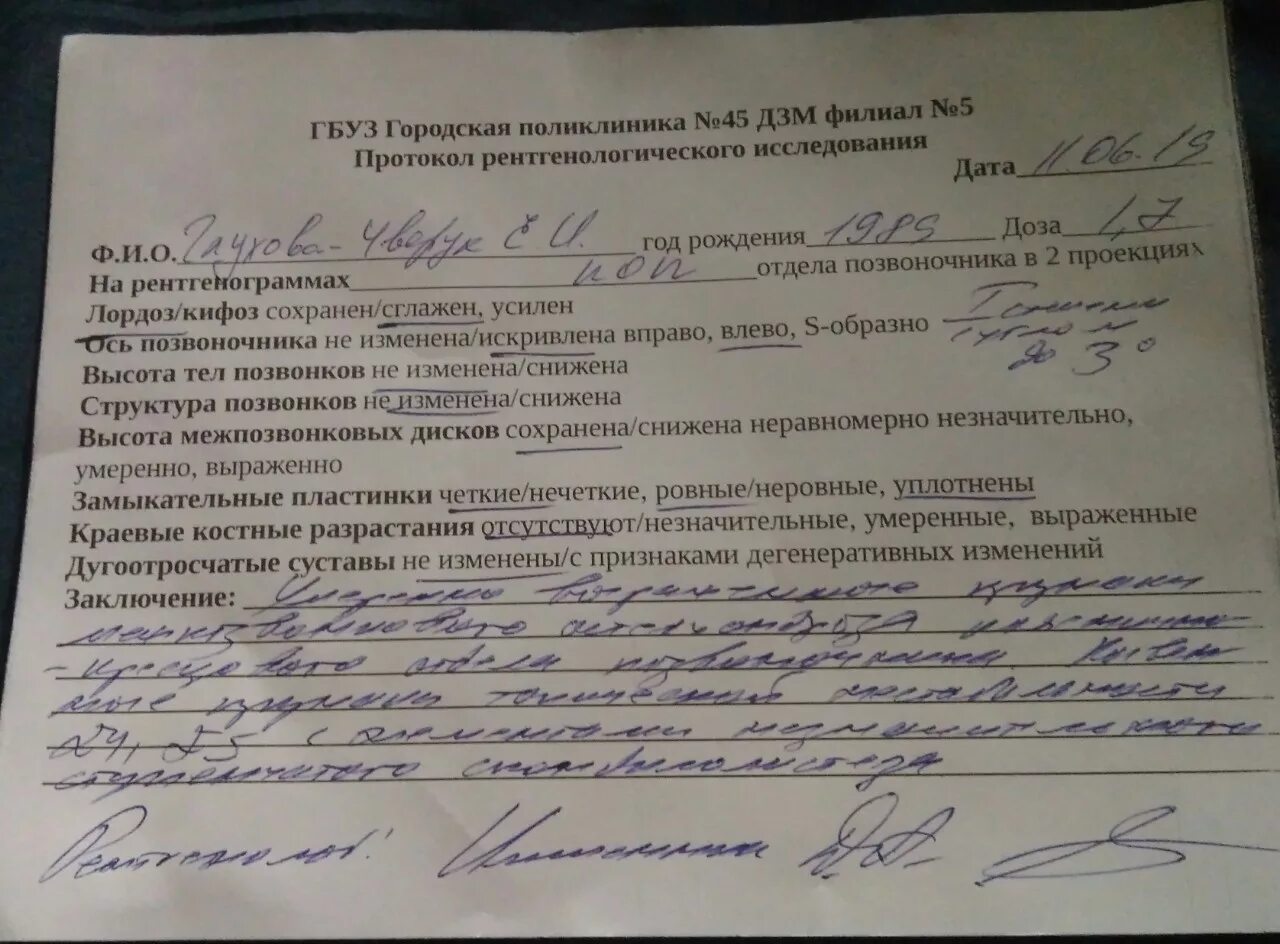 ГБУЗ Городская поликлиника №45 ДЗМ филиал №5
Протокол рентгенологического исследования
Дата 11.06.19
Ф.И.О. Глухова-Чверук Е.И. год рождения 1989 Доза 1,7
На рентгенограммах ПОП отдела позвоночника в 2 проекциях
Лордоз/кифоз сохранен/сглажен, усилен
Ось позвоночника не изменена/искривлена вправо, влево, S-образно I степени
углом
до 3°
Высота тел позвонков не изменена/снижена
Структура позвонков не изменена/снижена
Высота межпозвонковых дисков сохранена/снижена неравномерно незначительно,
умеренно, выраженно
Замыкательные пластинки четкие/нечеткие, ровные/неровные, уплотнены
Краевые костные разрастания отсутствуют/незначительные, умеренные, выраженные
Дугоотросчатые суставы не изменены/с признаками дегенеративных изменений
Заключение: признаки
межпозвонкового остеохондроза пояснично-
-крестцового отдела позвоночника. Косвен-
ные признаки нестабильности
L4, L5 с элементами
ступенчатого спондилолистеза
Рентгенолог: Д.А.